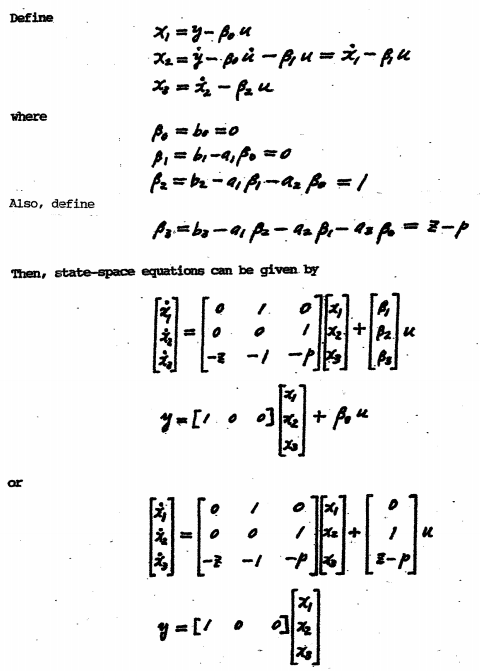 Define
x₁ = y − β₀ u
x₂ = ẏ − β₀ u̇ − β₁ u = ẋ₁ − β₁ u
x₃ = ẋ₂ − β₂ u
where
β₀ = b₀ = 0
β₁ = b₁ − a₁ β₀ = 0
β₂ = b₂ − a₁ β₁ − a₂ β₀ = 1
Also, define
β₃ = b₃ − a₁ β₂ − a₂ β₁ − a₃ β₀ = z − p
Then, state-space equations can be given by
[ẋ₁] [0 1 0] [x₁] [β₁]
[ẋ₂] = [0 0 1] [x₂] + [β₂] u
[ẋ₃] [−z −1 −p] [x₃] [β₃]
y = [1 0 0] [x₁ x₂ x₃] + β₀ u
or
[ẋ₁] [0 1 0] [x₁] [0]
[ẋ₂] = [0 0 1] [x₂] + [1] u
[ẋ₃] [−z −1 −p] [x₃] [z − p]
y = [1 0 0] [x₁ x₂ x₃]